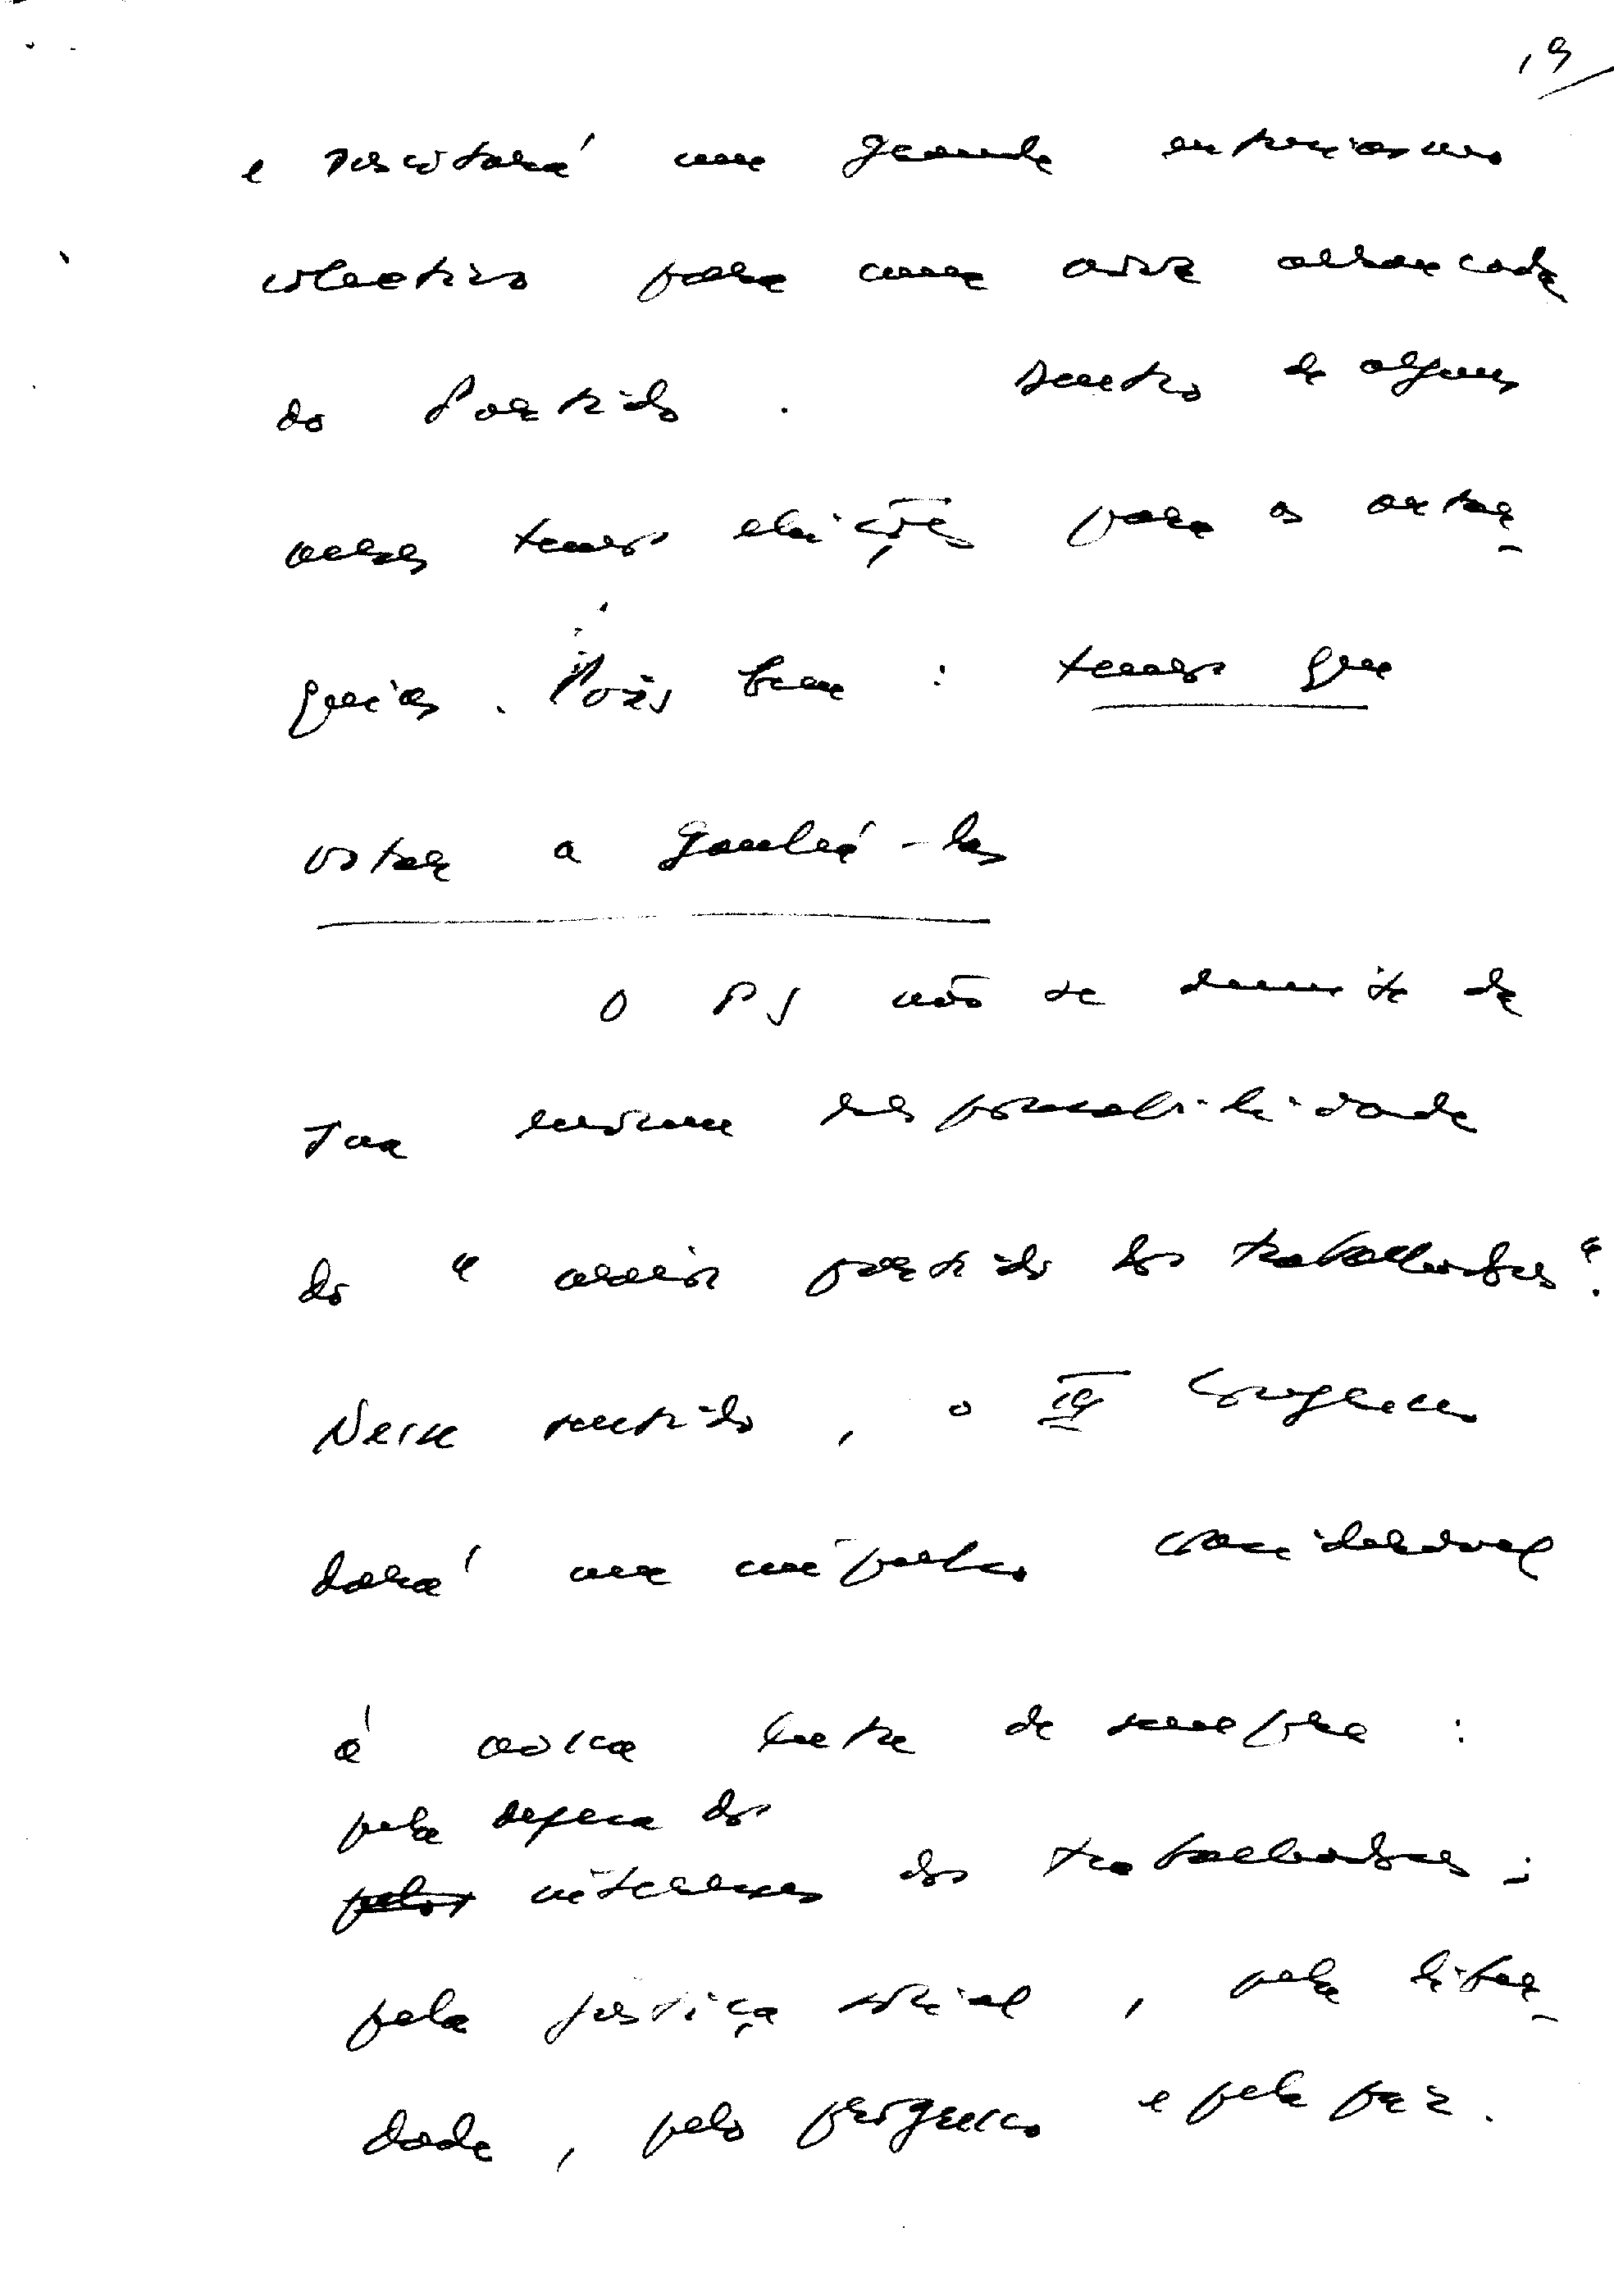 19
e suscitará um grande entusiasmo
colectivo para uma nova arrancada
do Partido. Dentro de alguns
meses temos eleições para as autar-
quias. Pois bem: temos que
voltar a ganhá-las
O PS não se demite da
sua enorme responsabilidade
do "maior partido dos trabalhadores".
Nesse sentido, o IV Congresso
dará um impulso considerável
à nossa luta de sempre:
pela defesa dos
pelos interesses dos trabalhadores;
pela justiça social, pela liber-
dade, pelo progresso e pela paz.